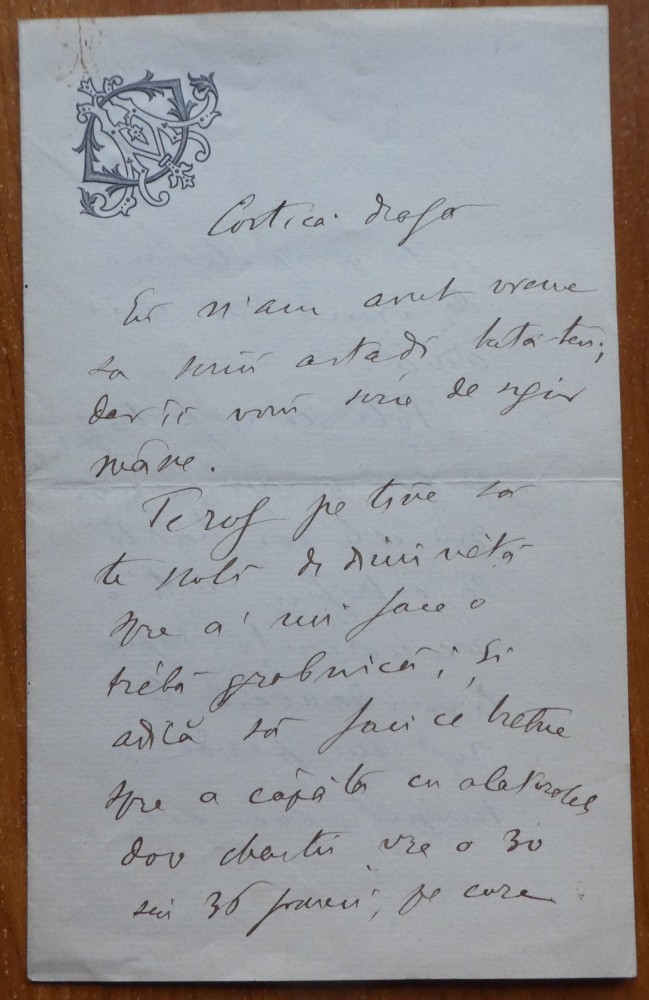 Costică dragă
Eu n'am avut vreme
să scriu astădi tată-tĕu;
dar îi voiu scrie de sigur
mâne.
Te rog pe tine să
te scoli de diminéță
spre a'mi face o
trébă grabnică; și
adică să faci ce trebue
spre a căpăta cu alaturatele
dou chartii vre o 30
séu 36 franci, pe care